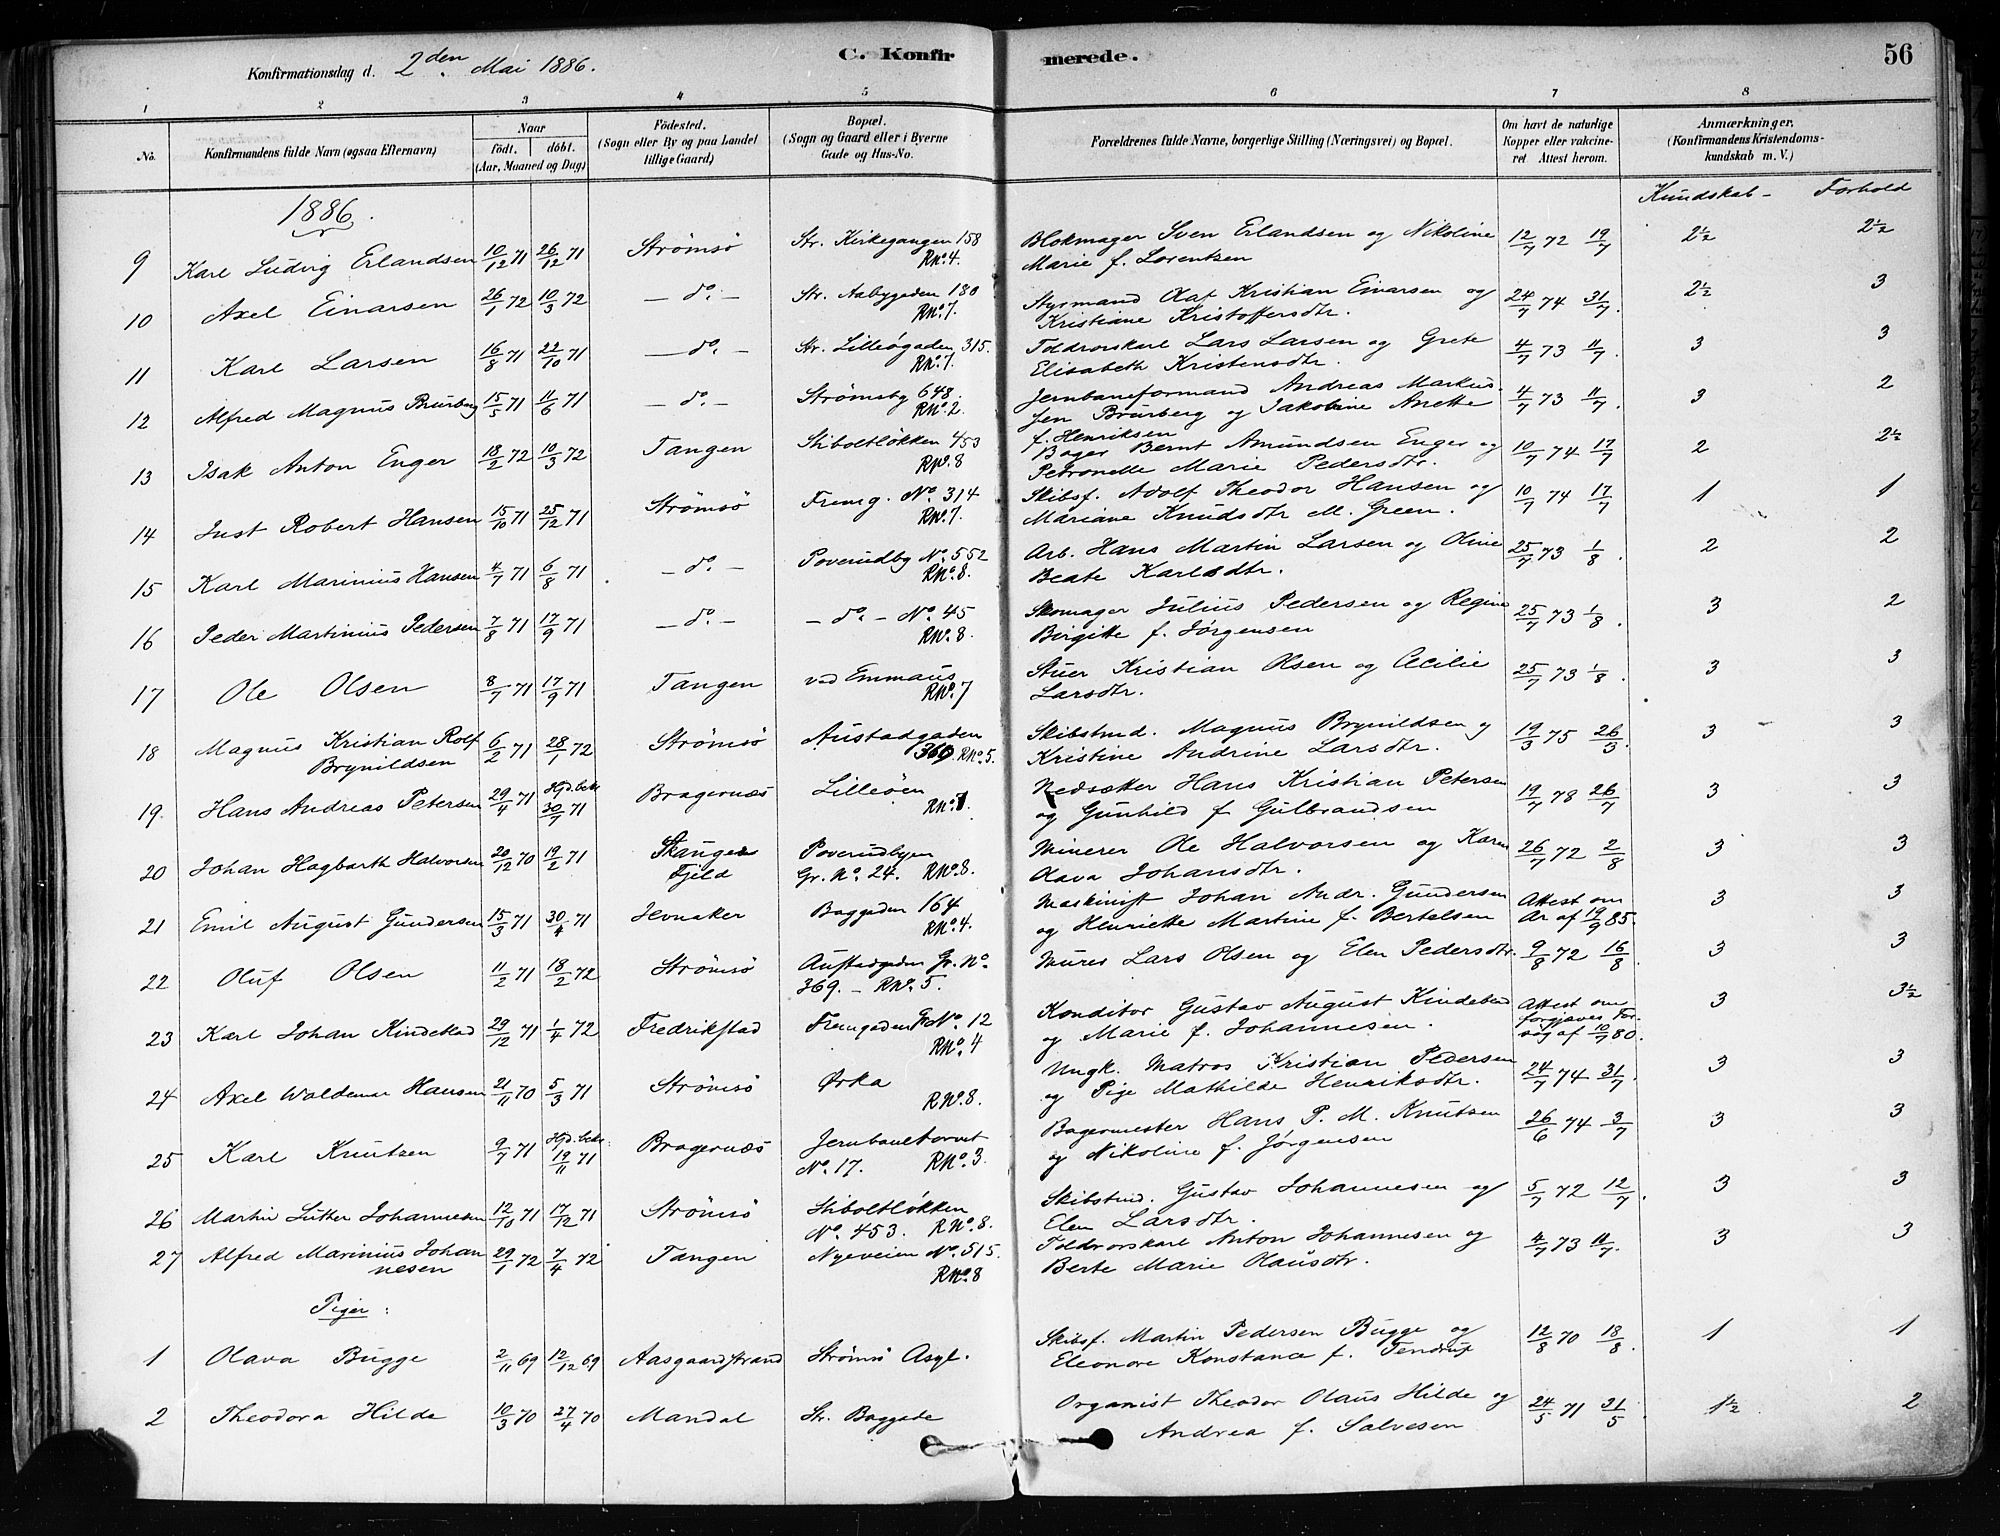 Konfirmationsdag d. 2den Mai 1886.
C. Konfirmerede.
56
1 2 3 4 5 6 7 8
No.
Konfirmandens fulde Navn (ogsaa Efternavn)
Naar
födt. döbt.
(Aar, Maaned og Dag)
Födested.
(Sogn eller By og paa Landet
tillige Gaard)
Bopæl.
(Sogn og Gaard eller i Byerne
Gade og Hus-No.
Forældrenes fulde Navne, borgerlige Stilling (Næringsvei) og Bopæl.
Om havt de naturlige
Kopper eller vakcine-
ret Attest herom.
Anmærkninger.
(Konfirmandens Kristendoms-
kundskab m. V.)
1886.
Kundskab - Forhold
9 Karl Ludvig Erlandsen 10/12 71 26/12 71 Strömsö Str. Kirkegangen 158 RNo. 4. Blokmager Sven Erlandsen og Nikoline
Marie f. Lorentzen 12/7 72 19/7 2½ 2½
10 Axel Einarsen 26/1 72 10/3 72 — do. — Str. Aabygaden 180 RNo. 7. Styrmand Kristian Einarsen og
Kristiane Kristoffersdtr. 24/7 74 31/7. 2½ 3
11 Karl Larsen 16/8 71 22/10 71 — do. — Str. Lilleögaden 315. RNo. 7. Toldrorskarl Lars Larsen og Grete
Elisabeth Kristensdtr. 4/7 73 11/7. 3 3
12 Alfred Magnus Brurberg 15/5 71 11/6 71 — do. — Strömsby 648. RNo. 2. Jernbaneformand Andreas Markus-
sen Brurberg og Jakobine Anette
f. Henriksen 4/7 73 11/7. 3 2
13 Isak Anton Enger 18/2 72 10/3 72 Tangen Stiboltlökken 453 RNo. 8 Bager Bernt Amundsen Enger og
Petronelle Marie Pedersdtr. 10/7 74 17/7 2 2½
14 Just Robert Hansen 15/10 71 25/12 71 Strömsö Fremg. No. 314 RNo. 7. Skibsf. Adolf Theodor Hansen og
Mariane Knudsdtr M. Green. 10/7 74 17/7 1 1
15 Karl Marinius Hansen 4/7 71 6/8 71 — do. — Poverudby No. 552 RNo. 8. Arb. Hans Martin Larsen og Oline
Beate Karlsdtr. 25/7 73 1/8. 2 2
16 Peder Martinius Pedersen 7/8 71 17/9 71 — do. — — do. — No. 45 RNo. 8. Skomager Julius Pedersen og Regine
Birgitte f. Jörgensen 25/7 73 1/8. 3 2
17 Ole Olsen 8/7 71 17/9 71 Tangen ved Emmaus RNo. 7 Stuer Kristian Olsen og Cecilie
Larsdtr. 25/7 73 1/8. 3 3
18 Magnus Kristian Rolf
Brynildsen 6/2 71 28/1 72 Strömsö Austadgaden 369. RNo. 5. Skibstmd. Magnus Brynildsen og
Kristine Andrine Larsdtr. 19/3 75 26/3. 3 3
19. Hans Andreas Petersen 29/4 71 Hjd. bekr. 30/7 71 Bragernæs Lilleöen RNo. 7. Nedsætter Hans Kristian Petersen
og Gunhild f Gulbrandsen 19/7 78 26/7 3 3
20 Johan Hagbarth Halvorsen 20/12 70 19/2 71 Skauger
Fjeld Poverudbyen
Gr. No. 24. RNo. 8. Minerer Ole Halvorsen og Karen
Olava Johansdtr. 26/7 72 2/8 3 3
21 Emil August Gundersen 15/3 71 30/4 71 Jevnaker Baggaden 164 RNo. 4. Maskinist Johan Andr. Gundersen
og Henriette Martine f. Bertelsen Attest om
Ar af 19/9 85. 3 3
22 Oluf Olsen 11/2 71 18/2 72 Strömsö Austadgaden Gr. No.
369. — RNo. 5. Murer Lars Olsen og Elen Pedersdtr. 9/8 72 16/8 3 3
23 Karl Johan Kindestad 29/12 71 1/4 72 Fredrikstad Fremgaden No. 12 RNo. 4 Konditor Gustav August Kindestad
og Marie f. Johannesen. Attest om
forgjæves For-
søg af 10/7 80. 3 3½
24 Axel Waldemar Hansen 21/11 70 5/3 71 Strömsö Ørka RNo. 8. Ungk. Matros Kristian Pedersen
og Pige Mathilde Henriksdtr. 24/7 74 31/7. 3 3
25 Karl Knutzen 9/7 71 Hjd. bekr. 19/11 71 Bragernæs Jernbanetorvet
No. 17. RNo. 3. Bagermester Hans P. M. Knutsen
og Nikoline f. Jörgensen 26/6 74 3/7 3 3
26 Martin Lutter Johannesen 12/10 71 17/12 71 Strömsö Stiboltlökken
No. 453. RNo. 8. Skibstmd. Gustav Johannesen og
Elen Larsdtr. 5/7 72 12/7. 3 3
27 Alfred Marinius Johan
nesen 29/1 72 7/4 72 Tangen Nyeveien No. 515. RNo. 8 Toldrorskarl Anton Johannesen og
Berte Marie Olausdtr. 4/7 73 11/7. 3 3
Piger:
1 Olava Bugge 2/11 69 12/12 69 Aasgaardstrand Strömsö Asyl. Skibsf. Martin Pedersen Bugge og
Eleonore Konstance f. Tendrup 12/8 70 18/8. 1 1
2 Theodora Hilde 10/3 70 27/4 70 Mandal Str. Baggade Organist Theodor Olaus Hilde og
Andrea f. Salvesen 24/5 71 31/5 1½ 2